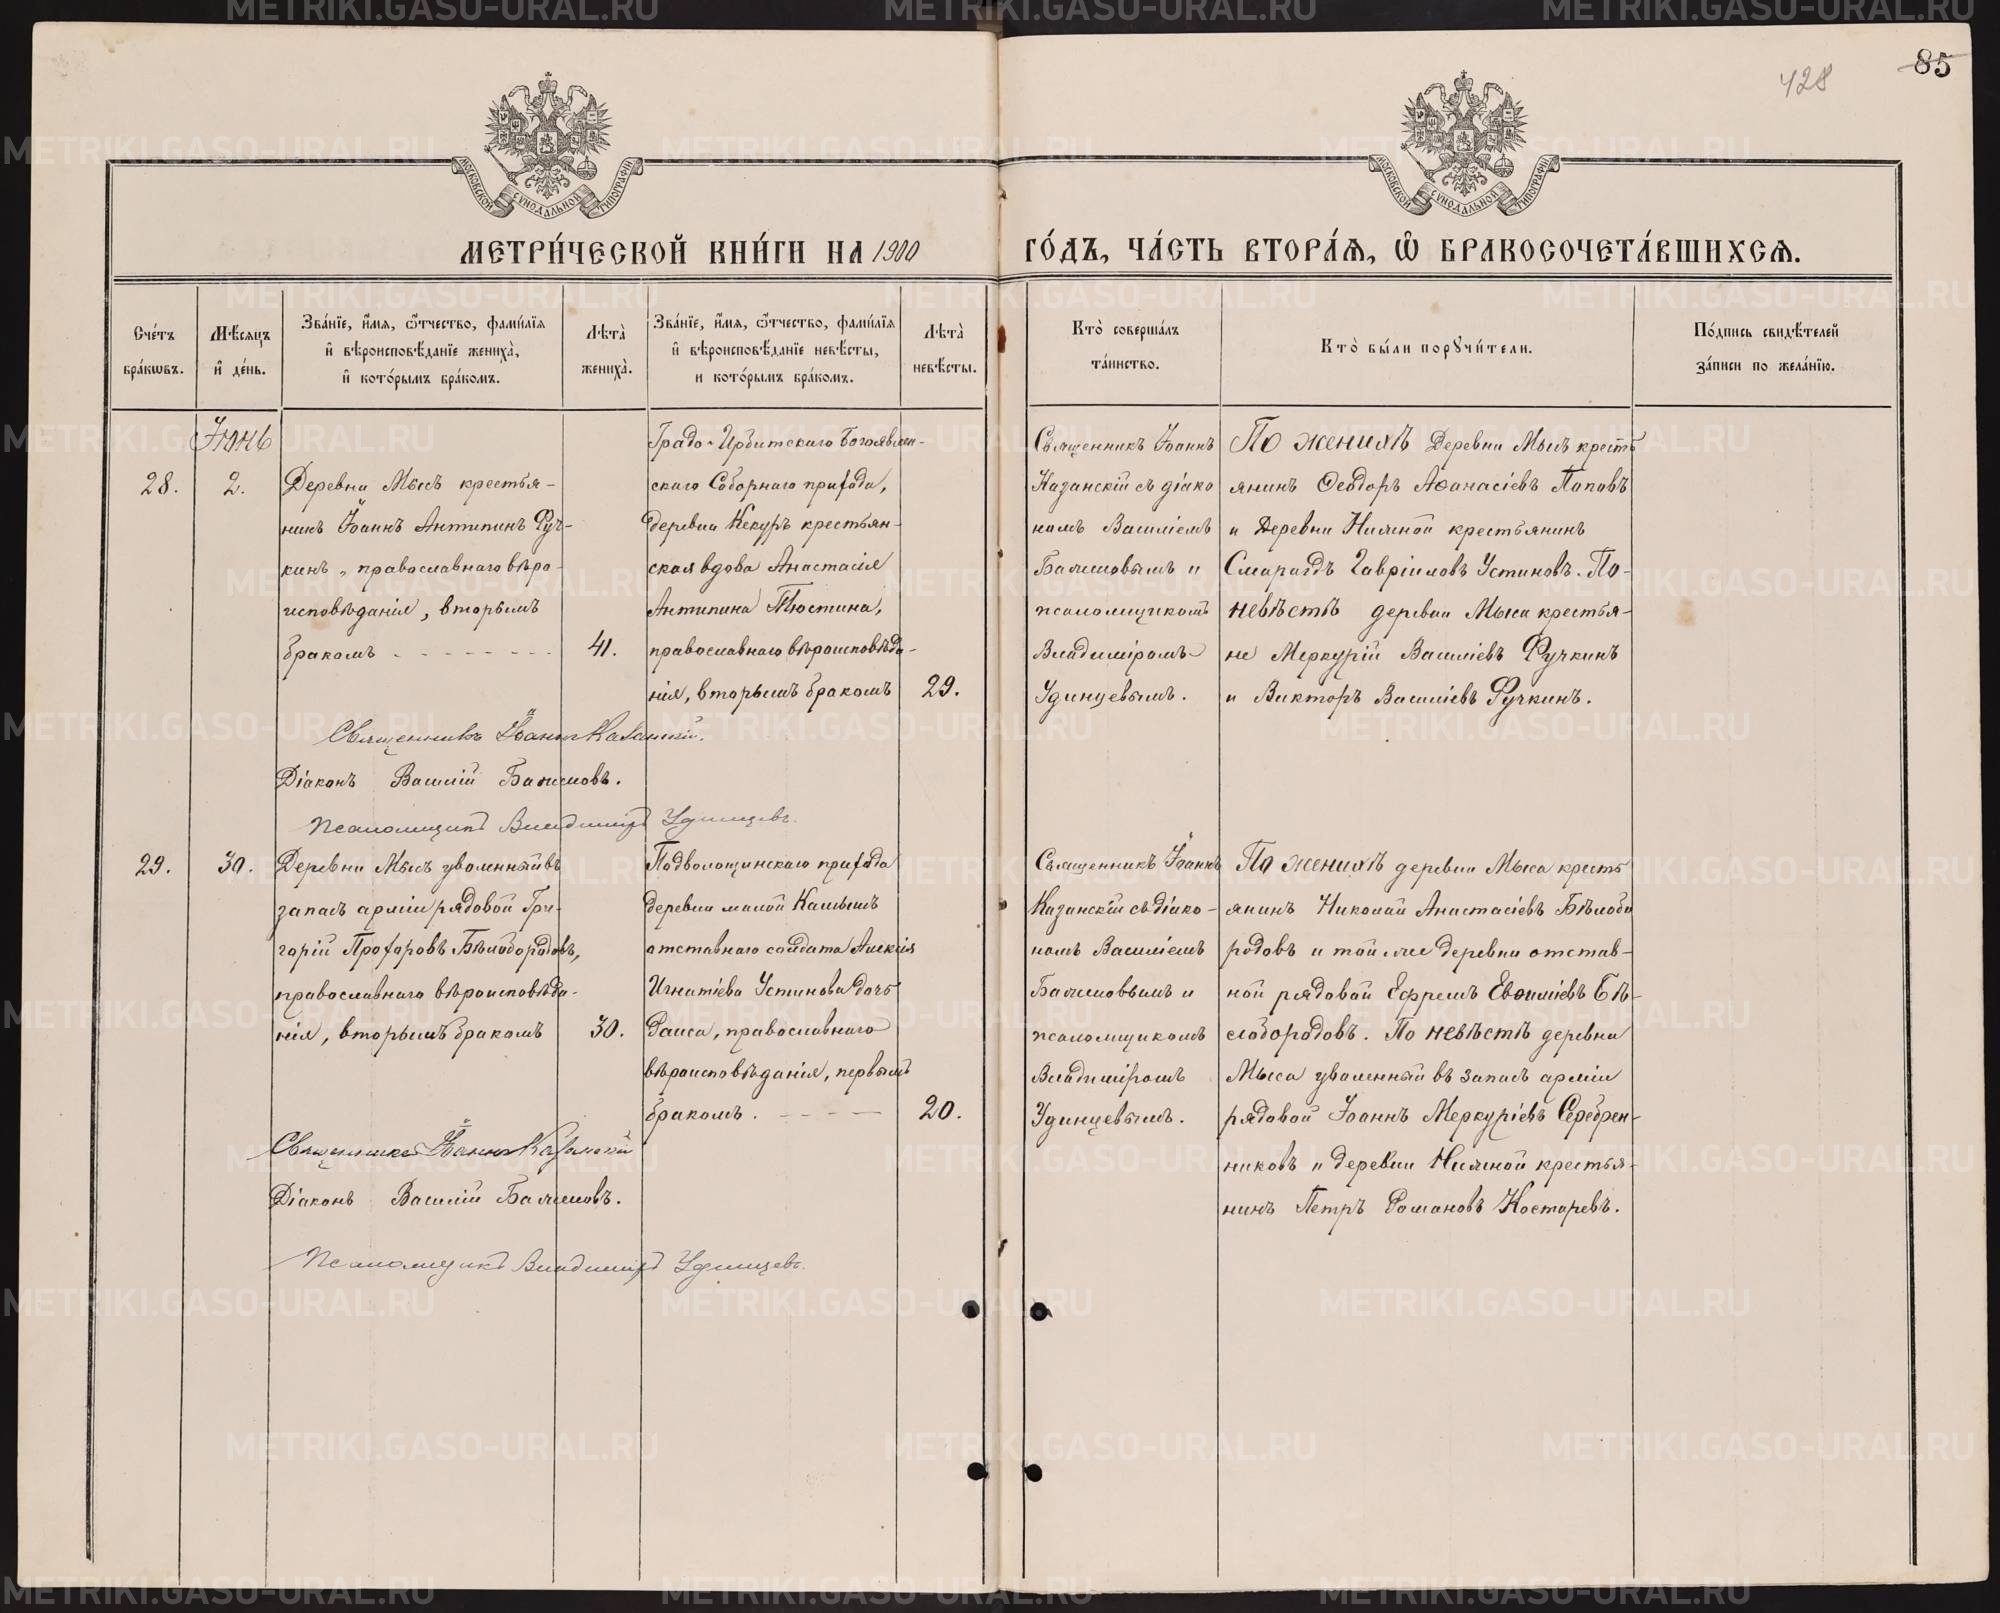 85
428
МОСКОВСКОЙ СУНОДАЛЬНОЙ ТИПОГРАФІИ
МОСКОВСКОЙ СУНОДАЛЬНОЙ ТИПОГРАФІИ
МЕТРИ́ЧЕСКОЙ КНИ́ГИ НА 1900 ГО́ДЪ, ЧА́СТЬ ВТОРА́Ѧ, Ѽ БРАКОСОЧЕТА́ВШИХСѦ.
Сче́тъ бра́кѡвъ.
Мѣ́сяцъ и҆ де́нь.
Зва́нїе, и҆́мѧ, ѻ҆́тчество, фами́лїѧ
и҆ вѣроисповѣ́данїе жениха̀,
и҆ кото́рымъ бра́комъ.
Лѣта̀ жениха̀.
Зва́нїе, и҆́мѧ, ѻ҆́тчество, фами́лїѧ
и҆ вѣроисповѣ́данїе невѣ́сты,
и кото́рымъ бра́комъ.
Лѣта̀ невѣ́сты.
Кто̀ соверша́лъ та́инство.
Кто̀ бы́ли порꙋчи́тели.
По́дпись свидѣ́телей за́писи по жела́нїю.
Іюнь
28.
2.
Деревни Мысъ крестья-
нинъ Іоаннъ Антипинъ Руч-
кинъ, православнаго вѣро-
исповѣданія, вторымъ
бракомъ
41.
Градо-Ирбитскаго Богоявлен-
скаго Соборнаго прихода,
деревни Кекуръ крестьян-
ская вдова Анастасія
Антипина Тюстина,
православнаго вѣроисповѣда-
нія, вторымъ бракомъ
29.
Священникъ Іоаннъ
Казанскій съ діако
номъ Василіемъ
Балашовымъ и
псаломщикомъ
Владиміромъ
Удинцевымъ.
По женихѣ Деревни Мысъ кресть
янинъ Ѳеодоръ Аѳанасіевъ Поповъ
и Деревни Нижной крестьянинъ
Смарагдъ Гавріиловъ Устиновъ. По-
невѣстѣ деревни Мыса крестья-
не Меркурій Василіевъ Ручкинъ
и Викторъ Василіевъ Ручкинъ.
Священникъ Іоаннъ Казанскій.
Діаконъ Василій Балашовъ.
Псаломщикъ Владиміръ Удинцевъ.
29.
30.
Деревни Мысъ уволенный въ
запасъ арміи рядовой Гри-
горій Прохоровъ Бѣлобородовъ,
православнаго вѣроисповѣда-
нія, вторымъ бракомъ
30.
Подволошинскаго прихода
деревни малой Камышъ
отставнаго солдата Алексія
Игнатіева Устинова дочь
Раиса, православнаго
вѣроисповѣданія, первымъ
бракомъ.
20.
Священникъ Іоаннъ
Казанскій съ діако-
номъ Василіемъ
Балашовымъ и
псаломщикомъ
Владиміромъ
Удинцевымъ.
По женихѣ деревни Мыса кресть
янинъ Николай Анастасіевъ Бѣлобо
родовъ и той же деревни отстав-
ной рядовой Ефремъ Евѳиміевъ Бѣ-
лобородовъ. По невѣстѣ деревни
Мыса уволенный въ запасъ арміи
рядовой Іоаннъ Меркуріевъ Серебрен-
никовъ и деревни Нижной крестья-
нинъ Петръ Романовъ Костаревъ.
Священникъ Іоаннъ Казанскій
Діаконъ Василій Балашовъ.
Псаломщикъ Владиміръ Удинцевъ.
METRIKI.GASO-URAL.RU